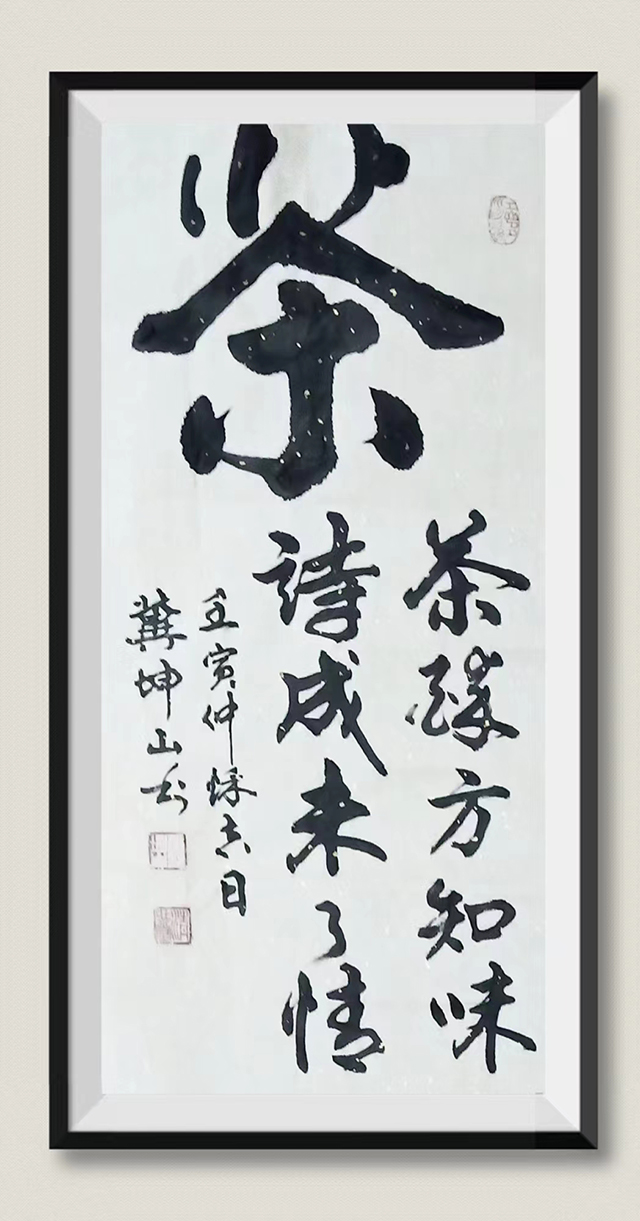 茶
茶方知味
詩成未了情
壬寅仲秋吉日
坤山书